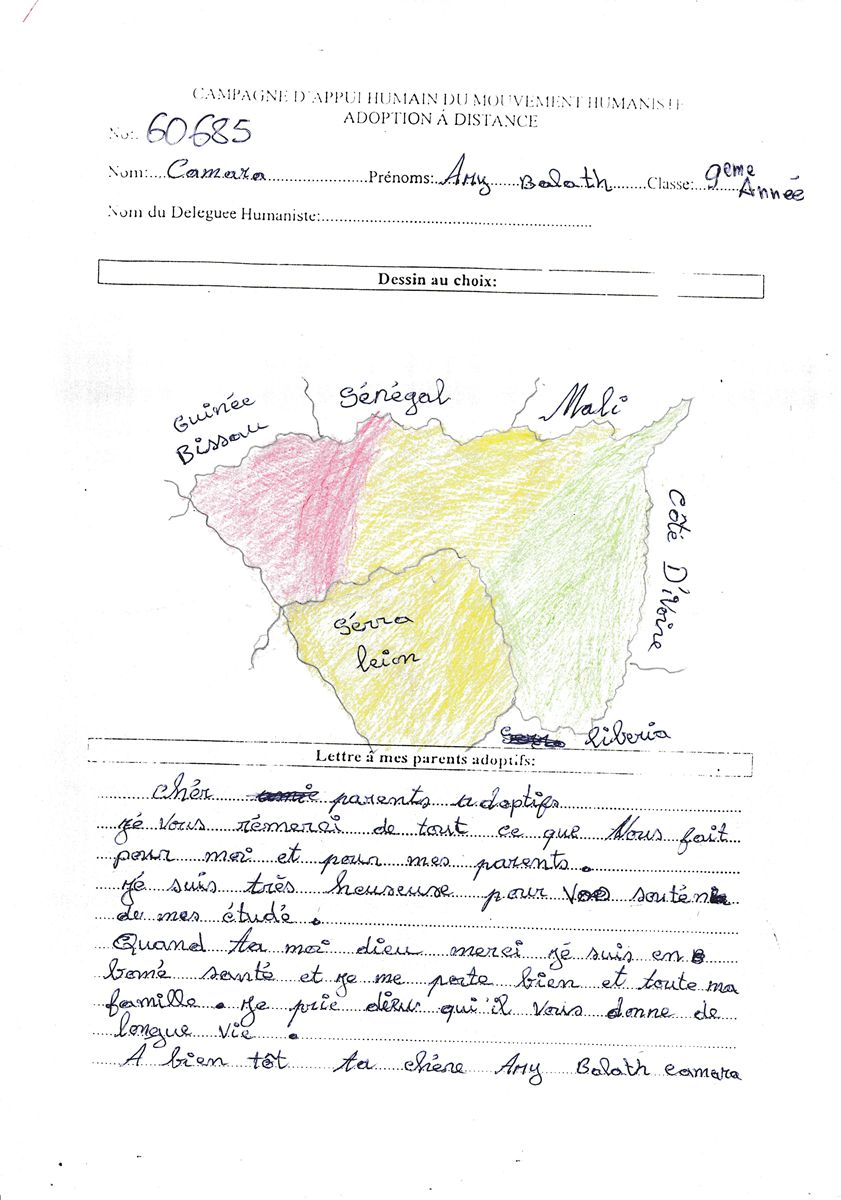 CAMPAGNE D'APPUI HUMAIN DU MOUVEMENT HUMANISTE
ADOPTION Á DISTANCE
No:. 60685
Nom:....Camara......................Prénoms:.Amy.....Balath.......Classe:..9eme Année
Nom du Deleguee Humaniste:......................................................
Dessin au choix:
Guinée
Bissau
Sénégal
Mali
Côté D'Ivoire
Sérra
leion
liberia
Lettre à mes parents adoptifs:
Chér parents adoptifs
jé vous rémerci de tout ce que Vous fait
pour moi et pour mes parents.
jé suis très heuseuse pour vos soutén
de mes étudé.
Quand ta moi dieu merci jé suis en
boné santé et je me porte bien et toute ma
famille. je prie dieu qui'il vous donne de
longue vie.
A bien tôt ta chère Amy Balath camara